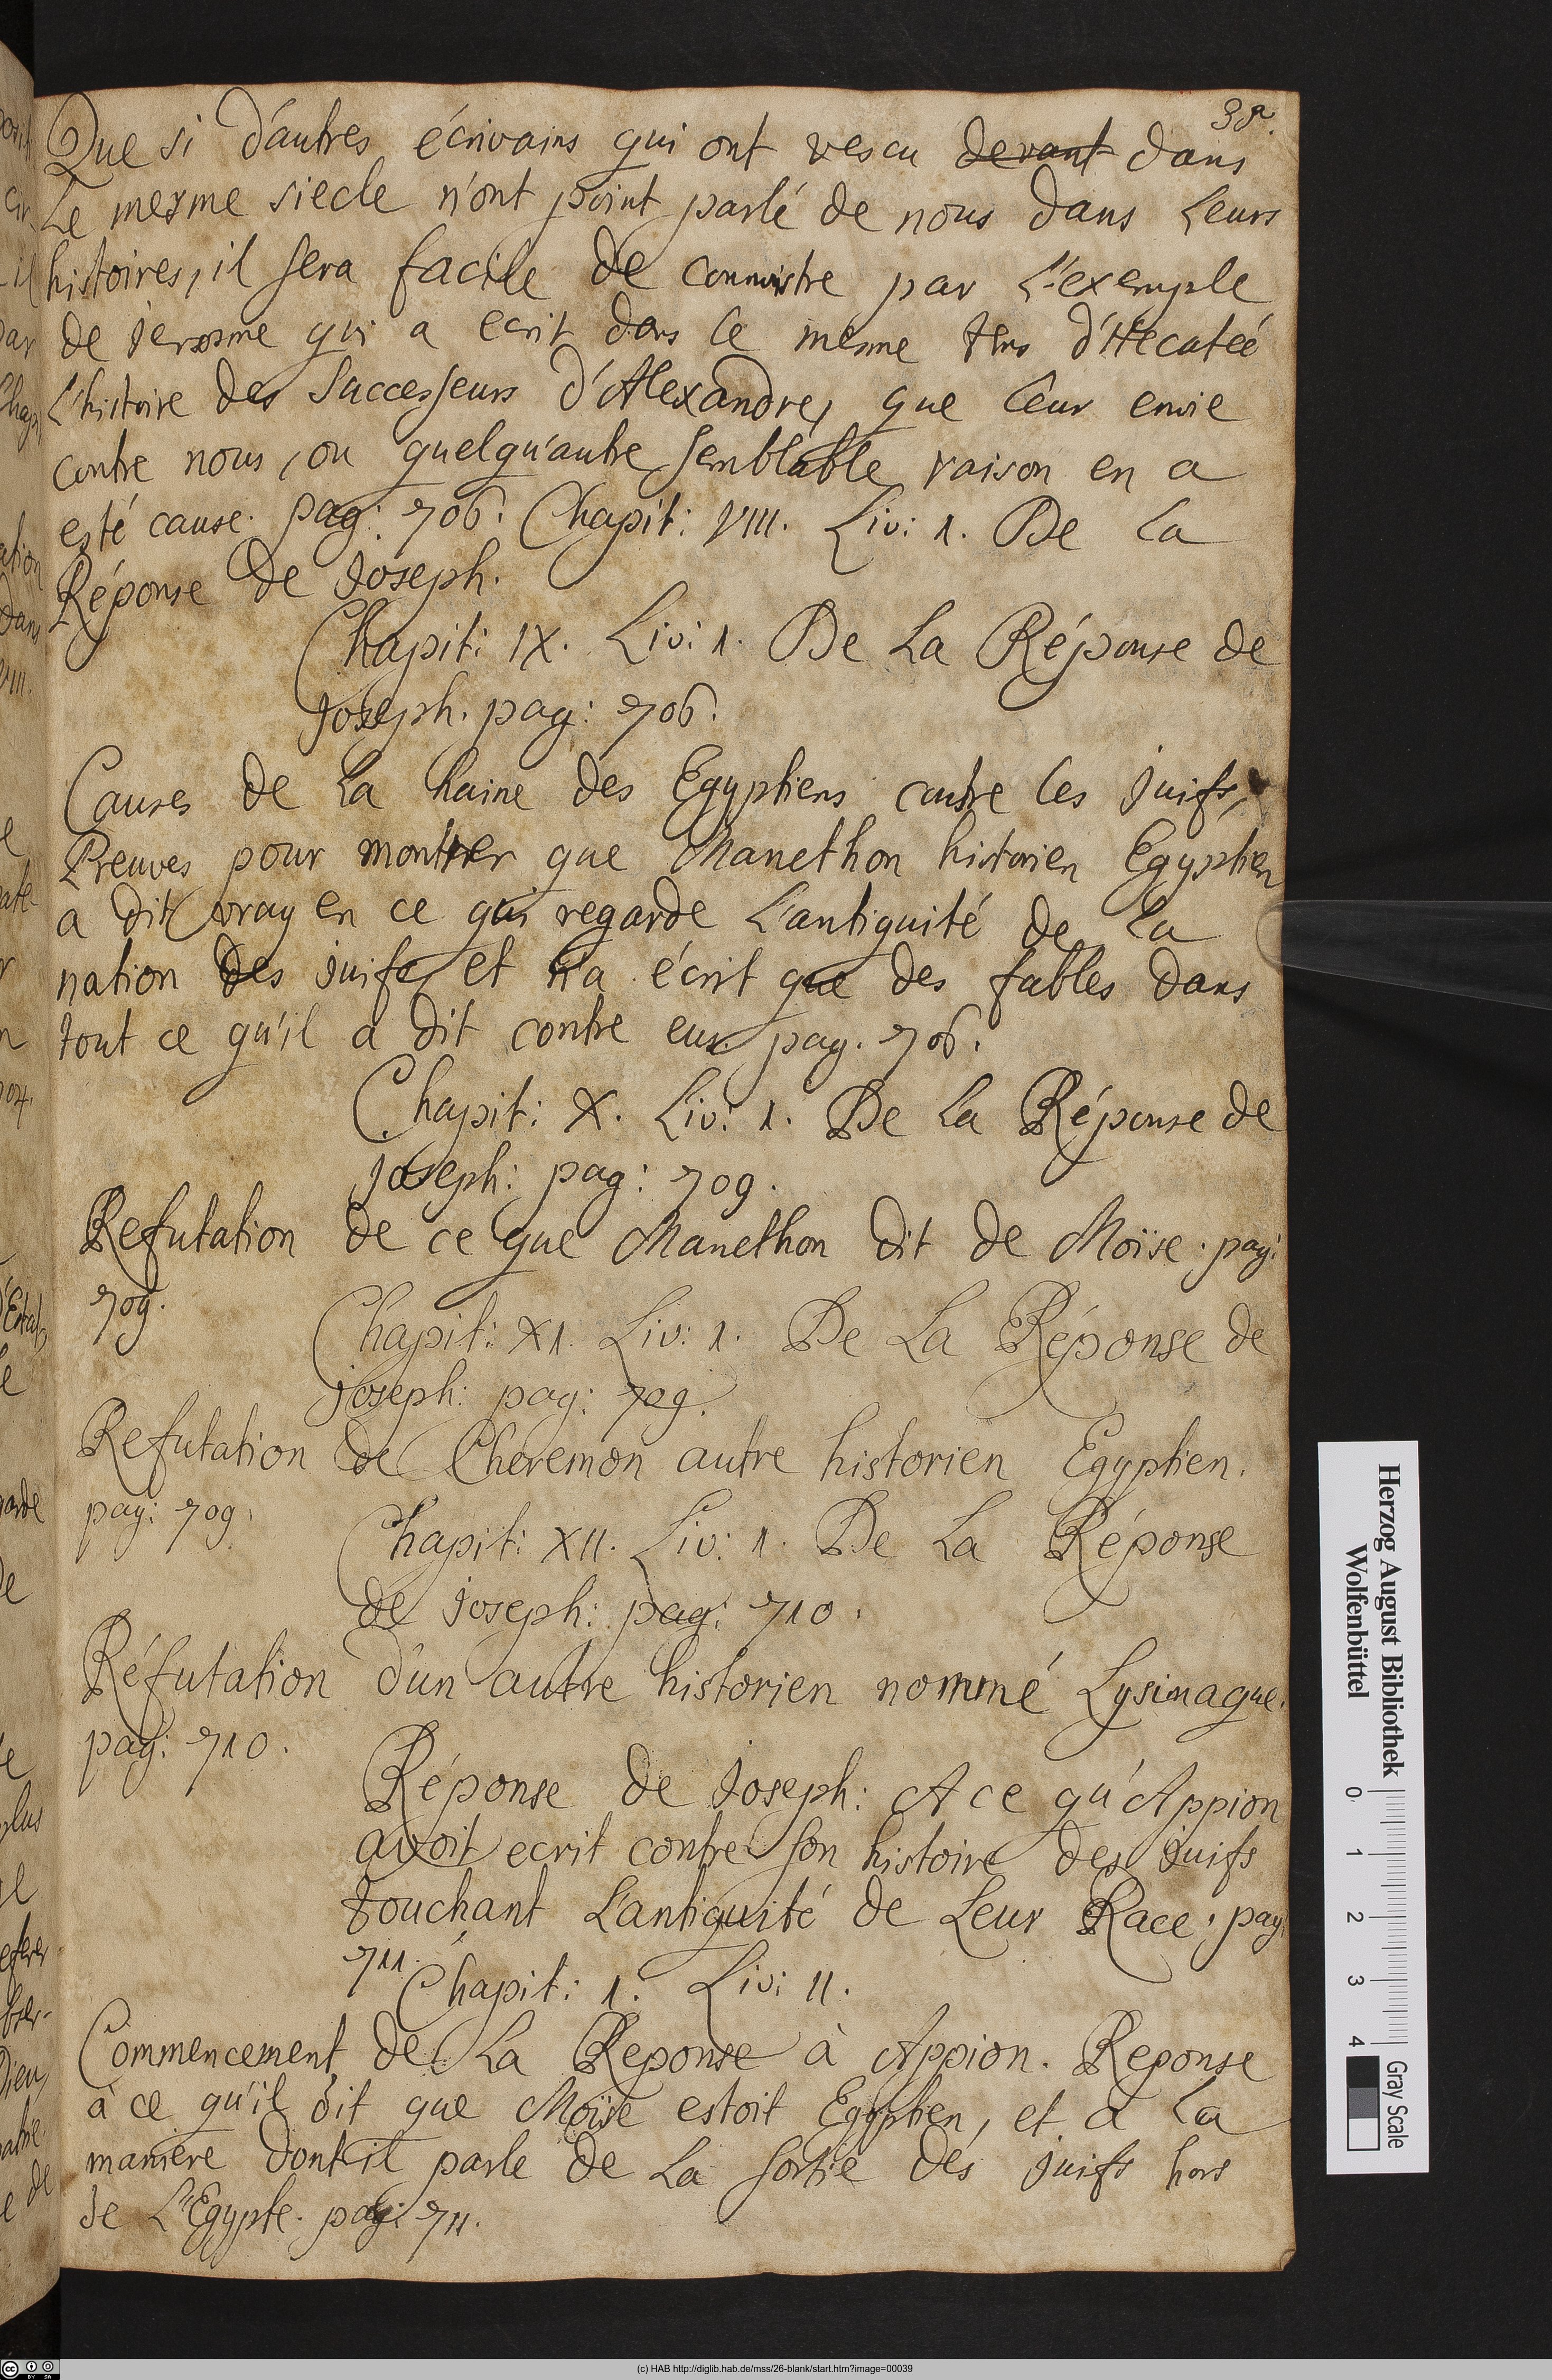 Que si d'autres écrivains qui ont vescu devant dans
Le mesme siecle n'ont point parlé de nous dans Leurs
histoires, il sera facile de connoistre par L'exemple
de jerosme qui a ecrit dans le mesme tems d'Hecateé
L'histoire des Successeurs d'Alexandre, que leur envie
contre nous, ou quelqu'autre semblable raison en a
esté cause. pag: 706. Chapit: VIII. Liv: 1. De la
Réponse de Joseph.
Chapit: IX. Liv: 1. De La Réponse de
Joseph. pag: 706.
Causes de La haine des Egyptiens contre les juifs,
Preuves pour montrer que Manethon historien Egyptien
a dit vray en ce qui regarde L'antiquité de la
nation des juifs, et n'a écrit que des fables dans
tout ce qu'il a dit contre eux. pag. 706.
Chapit: X. Liv: 1. De La Réponse de
Joseph: pag: 709.
Refutation de ce que Manethon dit de Moïse. pag:
709.
Chapit: XI. Liv: 1. De La Réponse de
Joseph: pag: 709.
Refutation de Cheremon autre historien Egyptien.
pag: 709.
Chapit: XII. Liv: 1. De La Réponse
de Joseph: pag: 710.
Réfutation d'un autre historien nommé Lysimaque.
pag: 710.
Réponse de Joseph: A ce qu'Appion
avoit ecrit contre son histoire des juifs
touchant L'antiquité de Leur Race. pag:
711.
Chapit: 1. Liv: II.
Commencement de La Reponse à Appion. Reponse
à ce qu'il dit que Moïse estoit Egyptien, et à la
maniere dont il parle de La sortie des juifs hors
de L'Egypte. pag: 711.
Herzog August Bibliothek
Wolfenbüttel
0 1 2 3 4
Gray Scale
(c) HAB http://diglib.hab.de/mss/26-blank/start.htm?image=00039